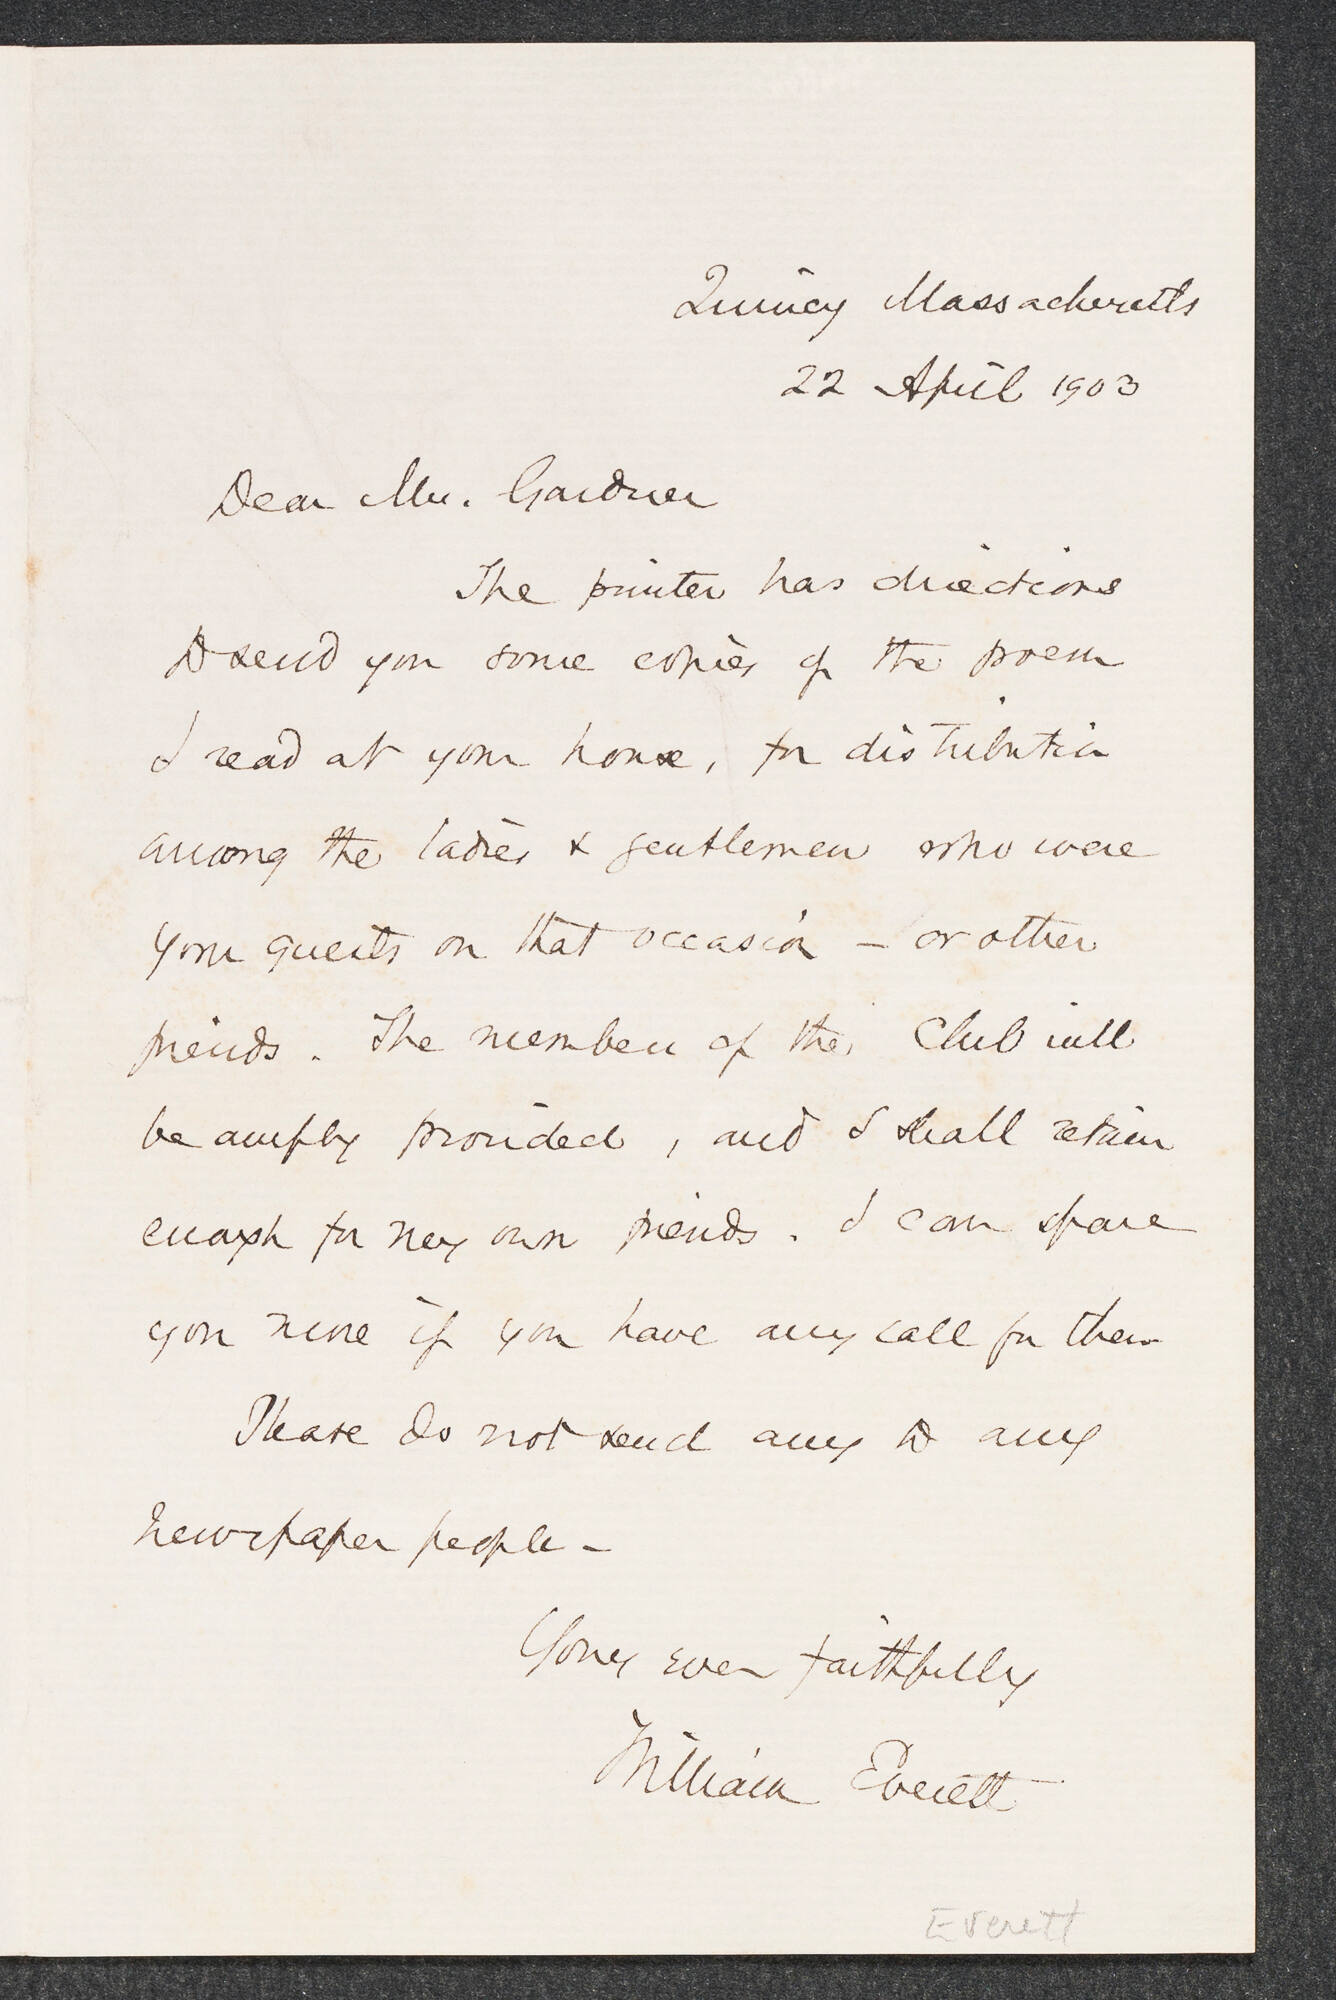 Quincy Massachusetts
22 April 1903
Dear Mrs. Gardner
The printer has directions
to send you some copies of the poem
I read at your house, for distribution
among the ladies & gentlemen who were
your guests on that occasion – or other
friends. The members of the Club will
be amply provided, and I shall retain
enough for my own friends. I can spare
you more if you have any call for them
Please do not send any to any
newspaper people –
Yours ever faithfully
William Everett
Everett